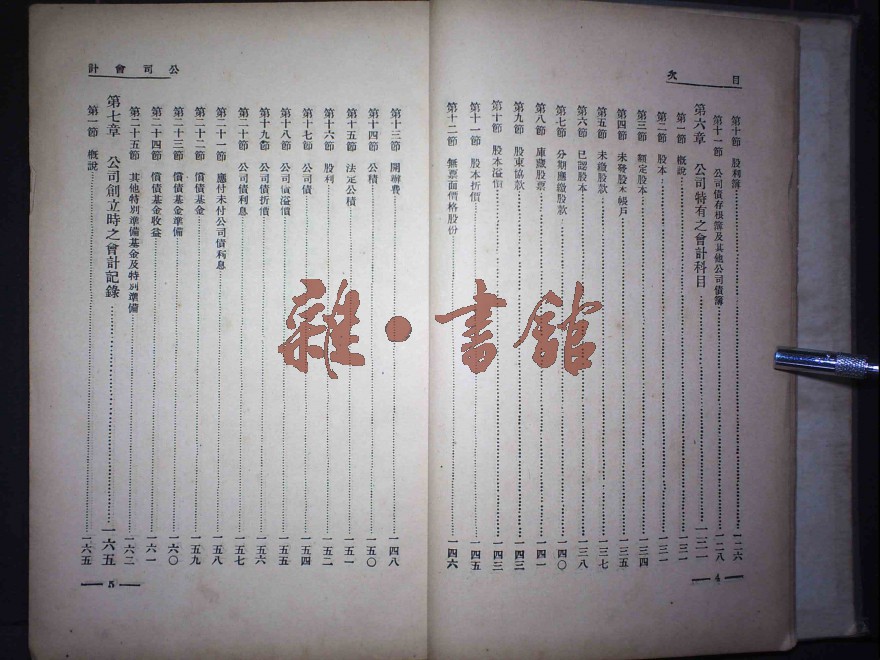 目次
第十節　股利簿……一二六
第十一節　公司債存根簿及其他公司債簿……一二八
第六章　公司特有之會計科目……一三一
第一節　概說……一三一
第二節　股本……一三一
第三節　額定股本……一三四
第四節　未發股本帳戶……一三五
第五節　未繳股款……一三七
第六節　已認股本……一三八
第七節　分期應繳股款……一四〇
第八節　庫藏股票……一四一
第九節　股東協款……一四三
第十節　股本溢價……一四三
第十一節　股本折價……一四五
第十二節　無票面價格股份……一四六
— 4 —
公司會計
第十三節　開辦費……一四八
第十四節　公積……一五〇
第十五節　法定公積……一五一
第十六節　股利……一五二
第十七節　公司債……一五四
第十八節　公司債溢價……一五五
第十九節　公司債折價……一五六
第二十節　公司債利息……一五七
第二十一節　應付未付公司債利息……一五八
第二十二節　償債基金……一五九
第二十三節　償債基金準備……一六〇
第二十四節　償債基金收益……一六一
第二十五節　其他特別準備基金及特別準備……一六二
第七章　公司創立時之會計記錄……一六五
第一節　概說……一六五
— 5 —
雜·書館